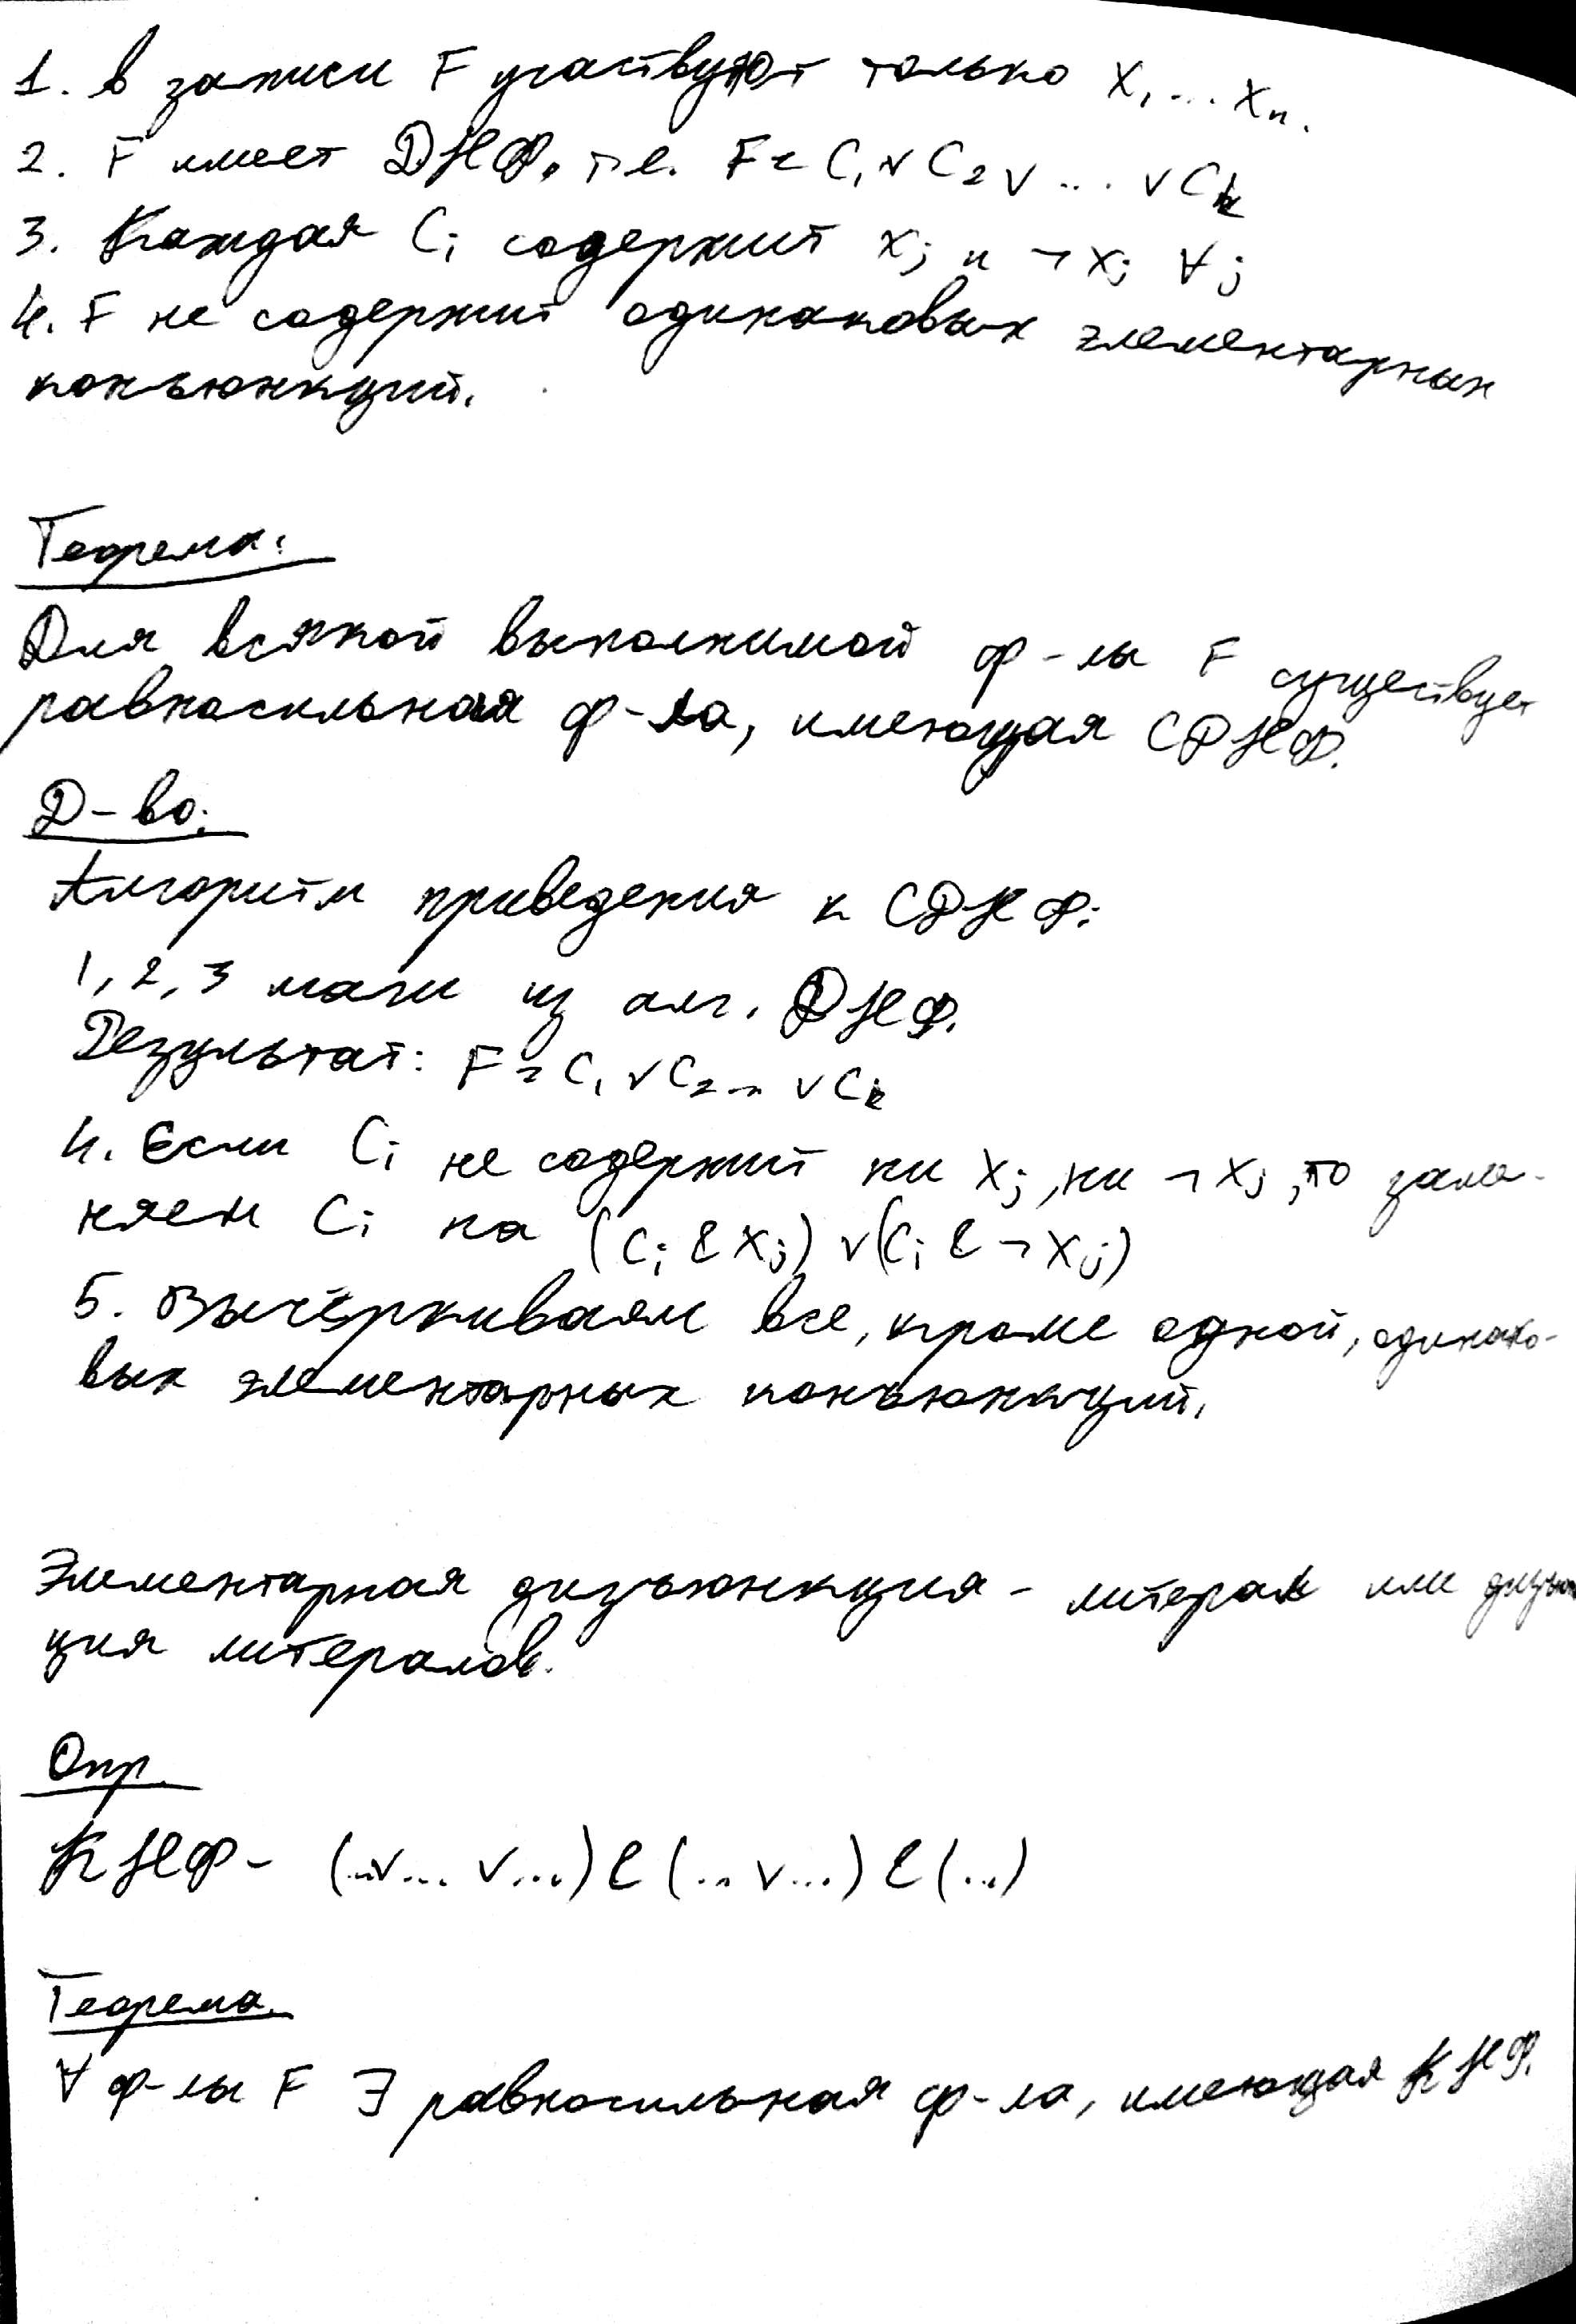 1. в записи F участвуют только x₁ ... xₙ.
2. F имеет ДНФ, т.е. F = C₁ ∨ C₂ ∨ ... ∨ Cₖ
3. Каждая Cᵢ содержит xⱼ и ¬xⱼ ∀j
4. F не содержит одинаковых элементарных
конъюнкций.
Теорема:
Для всякой выполнимой ф-лы F существует
равносильная ф-ла, имеющая СДНФ.
Д-во:
Алгоритм приведения к СДНФ:
1, 2, 3 шаги из алг. ДНФ.
Результат: F = C₁ ∨ C₂ ... ∨ Cₖ
4. Если Cᵢ не содержит ни xⱼ, ни ¬xⱼ, то заме-
няем Cᵢ на (Cᵢ & xⱼ) ∨ (Cᵢ & ¬xⱼ)
5. Вычёркиваем все, кроме одной, одинако-
вых элементарных конъюнкций.
Элементарная дизъюнкция - литерал или дизъюнк
ция литералов.
Опр.
КНФ - (...∨... ∨...) & (...∨...) & (...)
Теорема.
∀ ф-лы F ∃ равносильная ф-ла, имеющая КНФ.